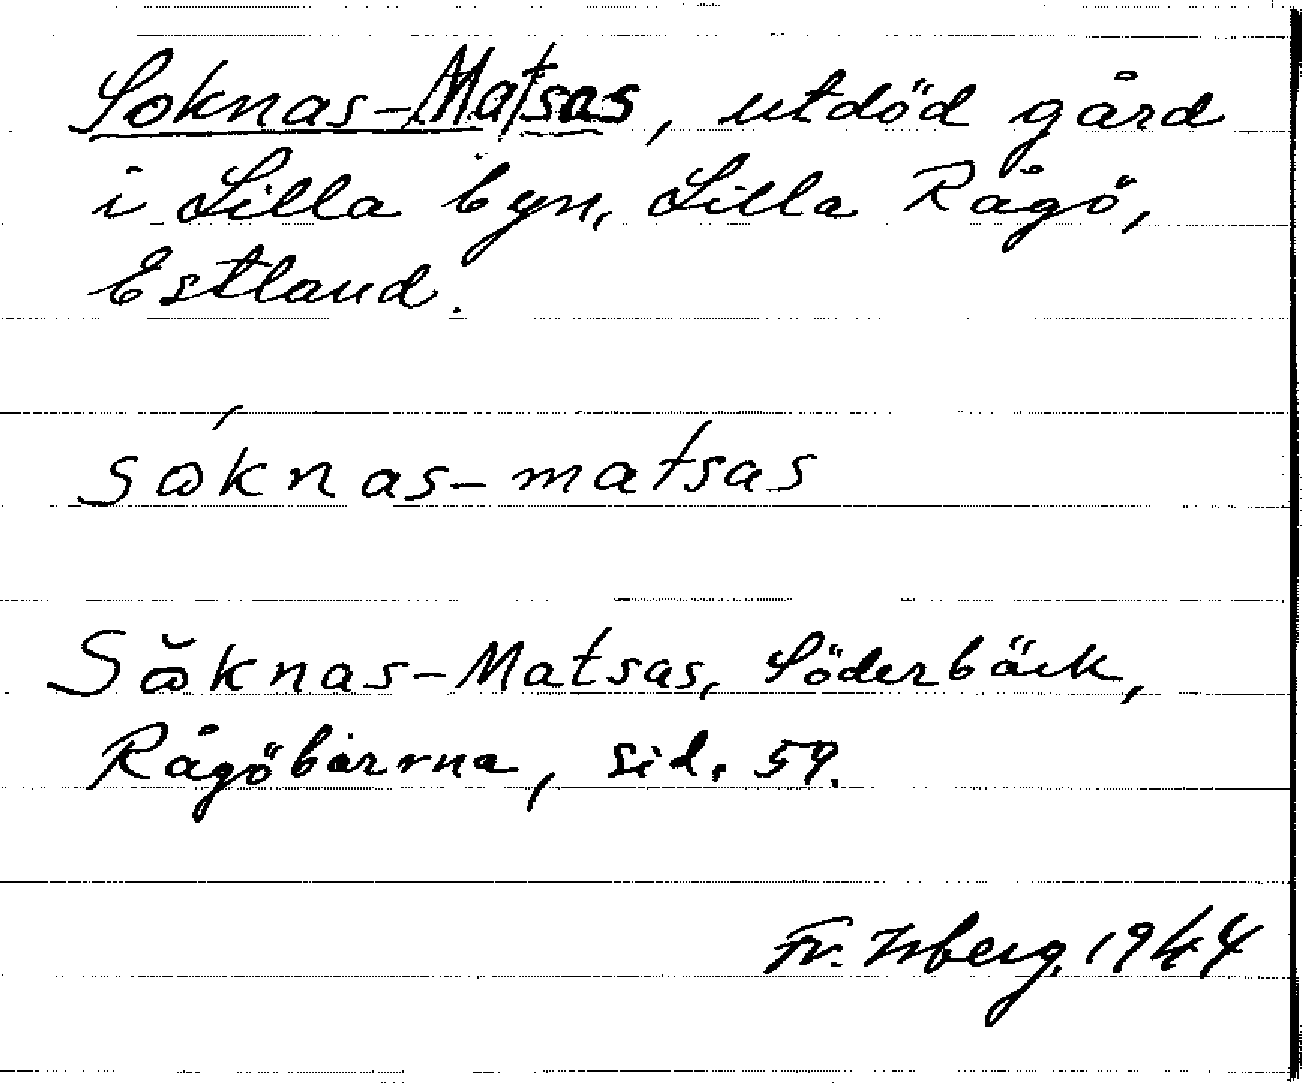 Soknas-Matsas, utdöd gård
i Lilla byn, Lilla Rågö,
Estland.
sꞷ́knas-matsas
Sꞷ̆knas-Matsas, Söderbäck,
Rågöborna, sid. 59.
Fr. Isberg, 1944